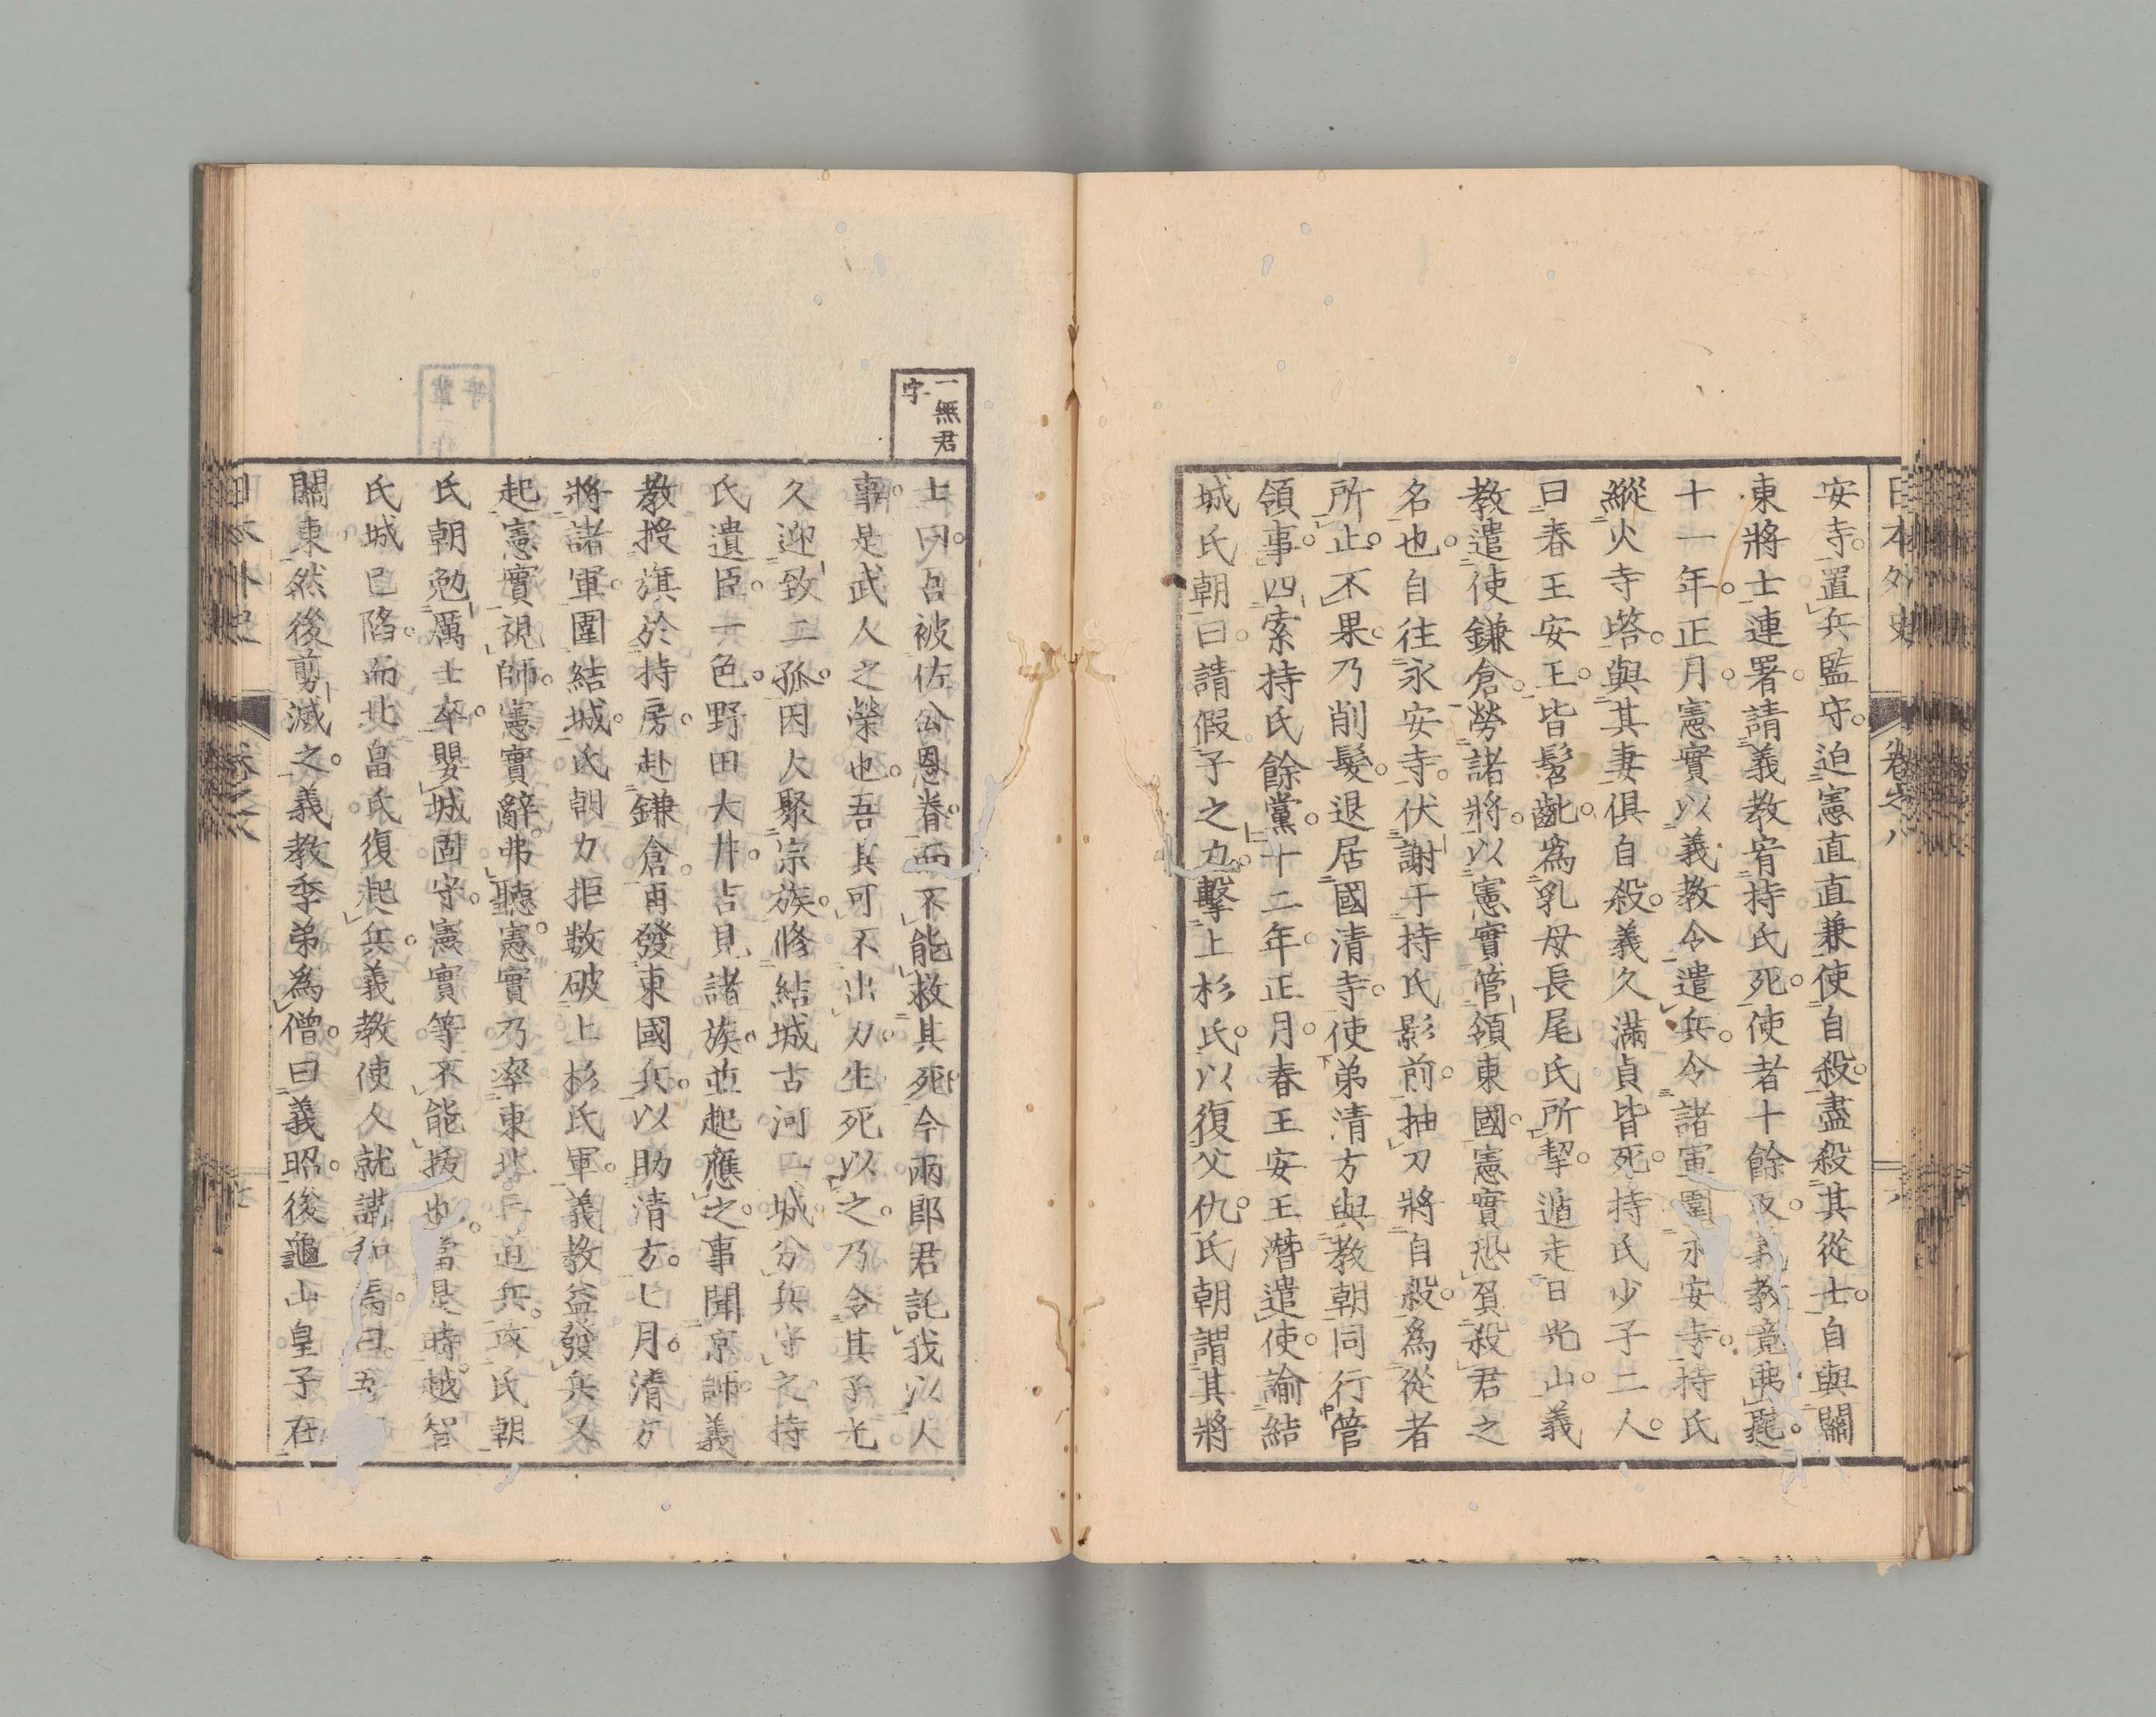 日本外史 卷之八
安寺。置兵監守。迫憲直直兼使自殺。盡殺其從士。自與關
東將士連署。請義教宥持氏死。使者十餘反。義教竟弗聽。
十一年。正月。憲實以義教令遣兵。令諸軍圍永安寺。持氏
縱火寺塔。與其妻俱自殺。義久滿貞皆死。持氏少子二人。
曰春王安王。皆髫齔。爲乳母長尾氏所挈。遁走日光山。義
教遣使鎌倉。勞諸將。以憲實管領東國。憲實恐負殺君之
名也。自往永安寺。伏謝于持氏影前。抽刀將自殺。爲從者
所止。不果。乃削髮。退居國清寺。使弟清方與教朝同行管
領事。四索持氏餘黨。十二年。正月。春王安王潛遣使。諭結
城氏朝曰。請假子之力。擊上杉氏。以復父仇。氏朝謂其將
一無君字
士曰。吾被佐公恩眷。而不能救其死。今兩郎君託我以人
事。是武人之榮也。吾其可不出力。生死以之。乃令其子光
久迎致二孤。因大聚宗族。修結城古河二城。分兵守之。持
氏遺臣。一色。野田大井。吉見諸族。並起應之。事聞京師。義
教授旗於持房。赴鎌倉。再發東國兵。以助清方。七月。清方
將諸軍。圍結城。氏朝力拒。數破上杉氏軍。義教益發兵。又
起憲實視師。憲實辭。弗聽。憲實乃率東北二道兵。攻氏朝
氏朝勉厲士卒。嬰城固守。憲實等不能拔也。當是時。越智
氏城已陷。而北畠氏復起兵。義教使人就講和焉。曰。吾
關東。然後剪滅之。義教季弟爲僧。曰義昭。後龜山皇子在
日本外史 卷之八